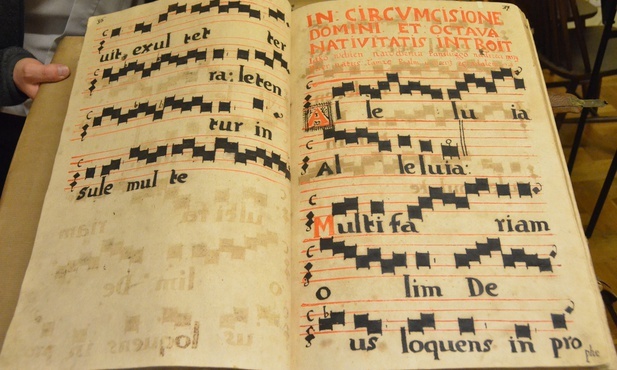 uit, exul tet ter
ra: leten
tur in
sule mul te
IN CIRCVMCISIONE
DOMINI ET OCTAVA
NATIVITATIS INTROIT
Al le lu ia
Al leluia:
Multi fa riam
o lim De
us loquens in pro
phe